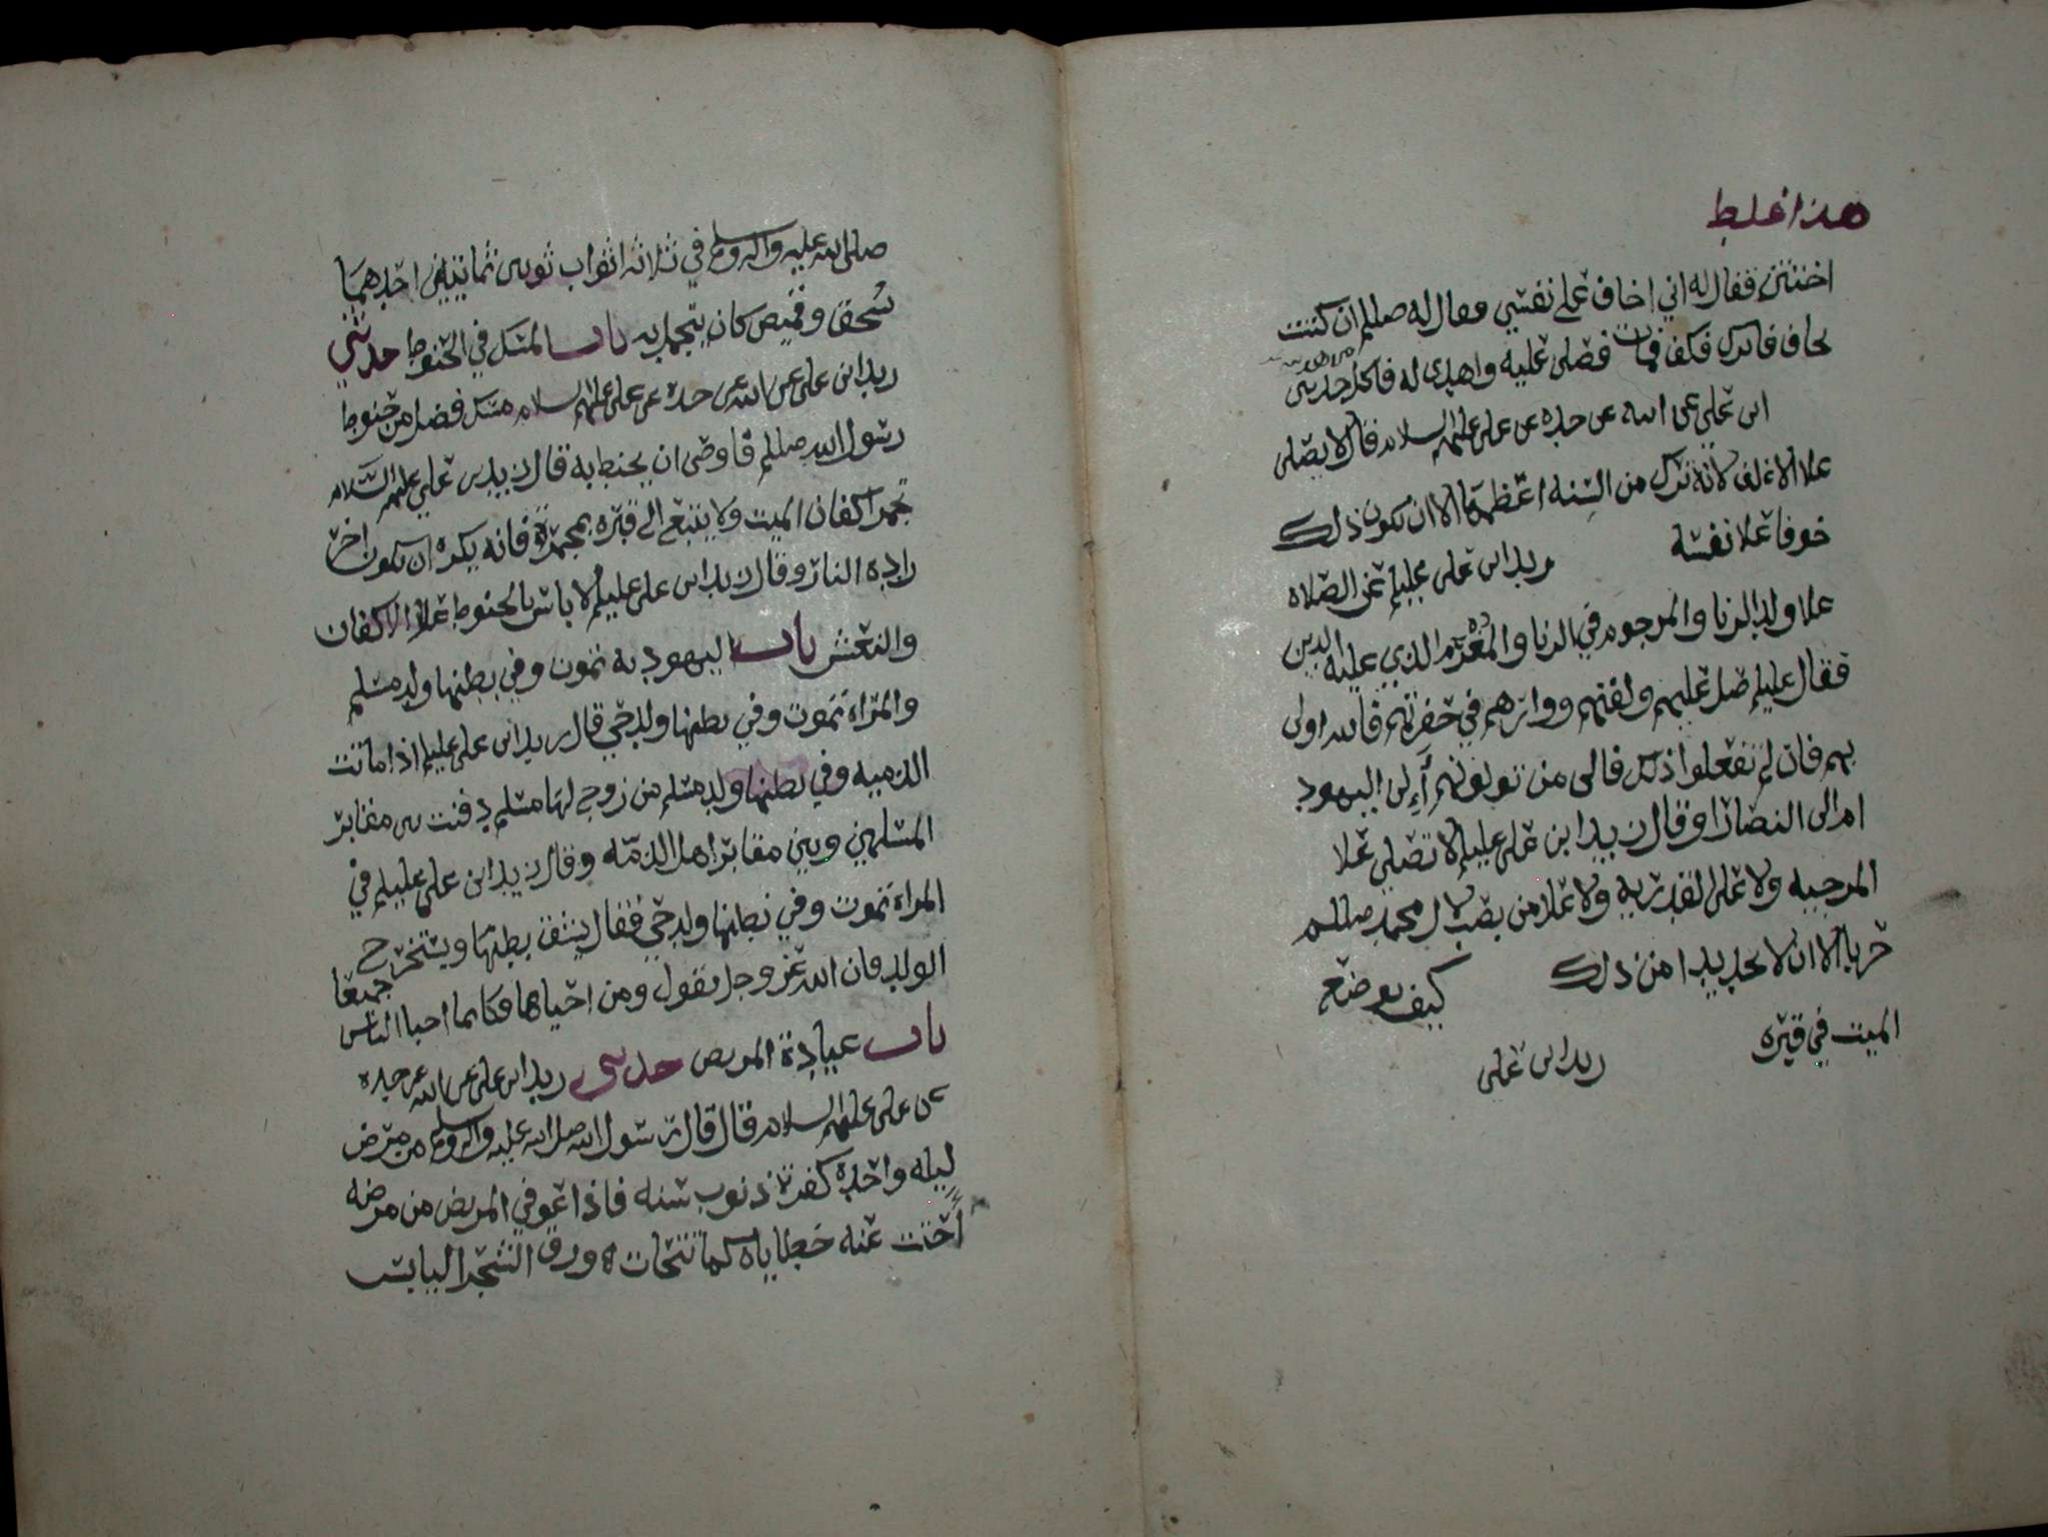 هذا غلط
اختتن فقال له اني اخاف على نفسي فقال له صللم ان كنت
تخاف فاكفف فكف فمات فصلى عليه واهدى له فاكل حدثني
ابن علي عن ابيه عن جده عن علي عليهم السلام قال لا يصلى
علا الاغلف لانه ترك من السنه اعظمها الا ان يكون ذلك
خوفا علا نفسه زيد ابن علي عليلم عن الصلاه
علا ولد الزنا والمرجوم في الزنا والمغرم الذي عليه الدين
فقال عليلم صل عليهم وكفنهم ووارهم في حفرتهم فالله اولى
بهم فان لم تفعلوا ذلك فالى من تولونهم أإلى اليهود
ام الى النصارا وقال زيد ابن علي عليلم لا تصلي علا
المرجيه ولا على القدريه ولا علا من نصب لال محمد صللم
حربا الا ان لا تجد بدا من ذلك كيف يوضع
الميت في قبره زيد ابن علي
صلى الله عليه واله وسلم في ثلاثه اثواب ثوبين يمانيين احدهما
سحق وقميص كان يتجمل به باب المسك في الحنوط حدثني
زيد ابن علي عن ابيه عن جده عن علي عليهم السلام مسك فضل من حنوط
رسول الله صللم فاوصى ان يحنط به قال زيد بن علي عليهم السلام
تجمر اكفان الميت ولا يتبع الى قبره بمجمرة فانه يكره ان يكون اخر
زاده النار وقال زيد ابن علي عليلم لا باس بالحنوط علا الاكفان
والنعش باب اليهوديه تموت وفي بطنها ولد مسلم
والمراه تموت وفي بطنها ولد حي قال زيد ابن علي عليلم اذا ماتت
الذميه وفي بطنها ولد مسلم من زوج لها مسلم دفنت بين مقابر
المسلمين وبين مقابر اهل الذمه وقال زيد ابن علي عليلم في
المراه تموت وفي بطنها ولد حي فقال يشق بطنها ويستخرج
الولد فان الله عز وجل يقول ومن احياها فكانما احيا الناس جميعا
باب عيادة المريض حدثني زيد ابن علي عن ابيه عن جده
عن علي عليهم السلام قال قال رسول الله صلى الله عليه واله وسلم من مرض
ليله واحده كفرت ذنوب سنه فاذا عوفي المريض من مرضه
تحاتت عنه خطاياه كما تتحات ورق الشجر اليابس